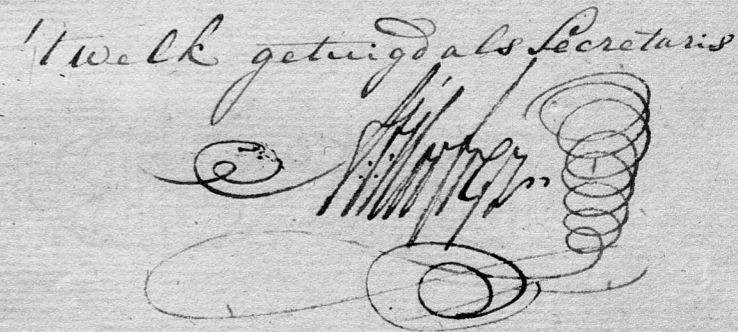 't welk getuigd als Secretaris